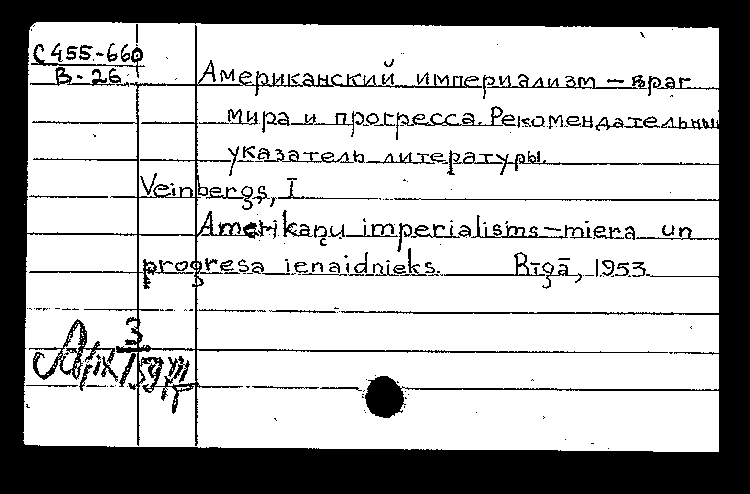 С455-660
В-26
Американский империализм – враг
мира и прогресса. Рекомендательный
указатель литературы.
Veinbergs, I
Amerikaņu imperialisms–miera un
progresa ienaidnieks. Rīgā, 1953
3